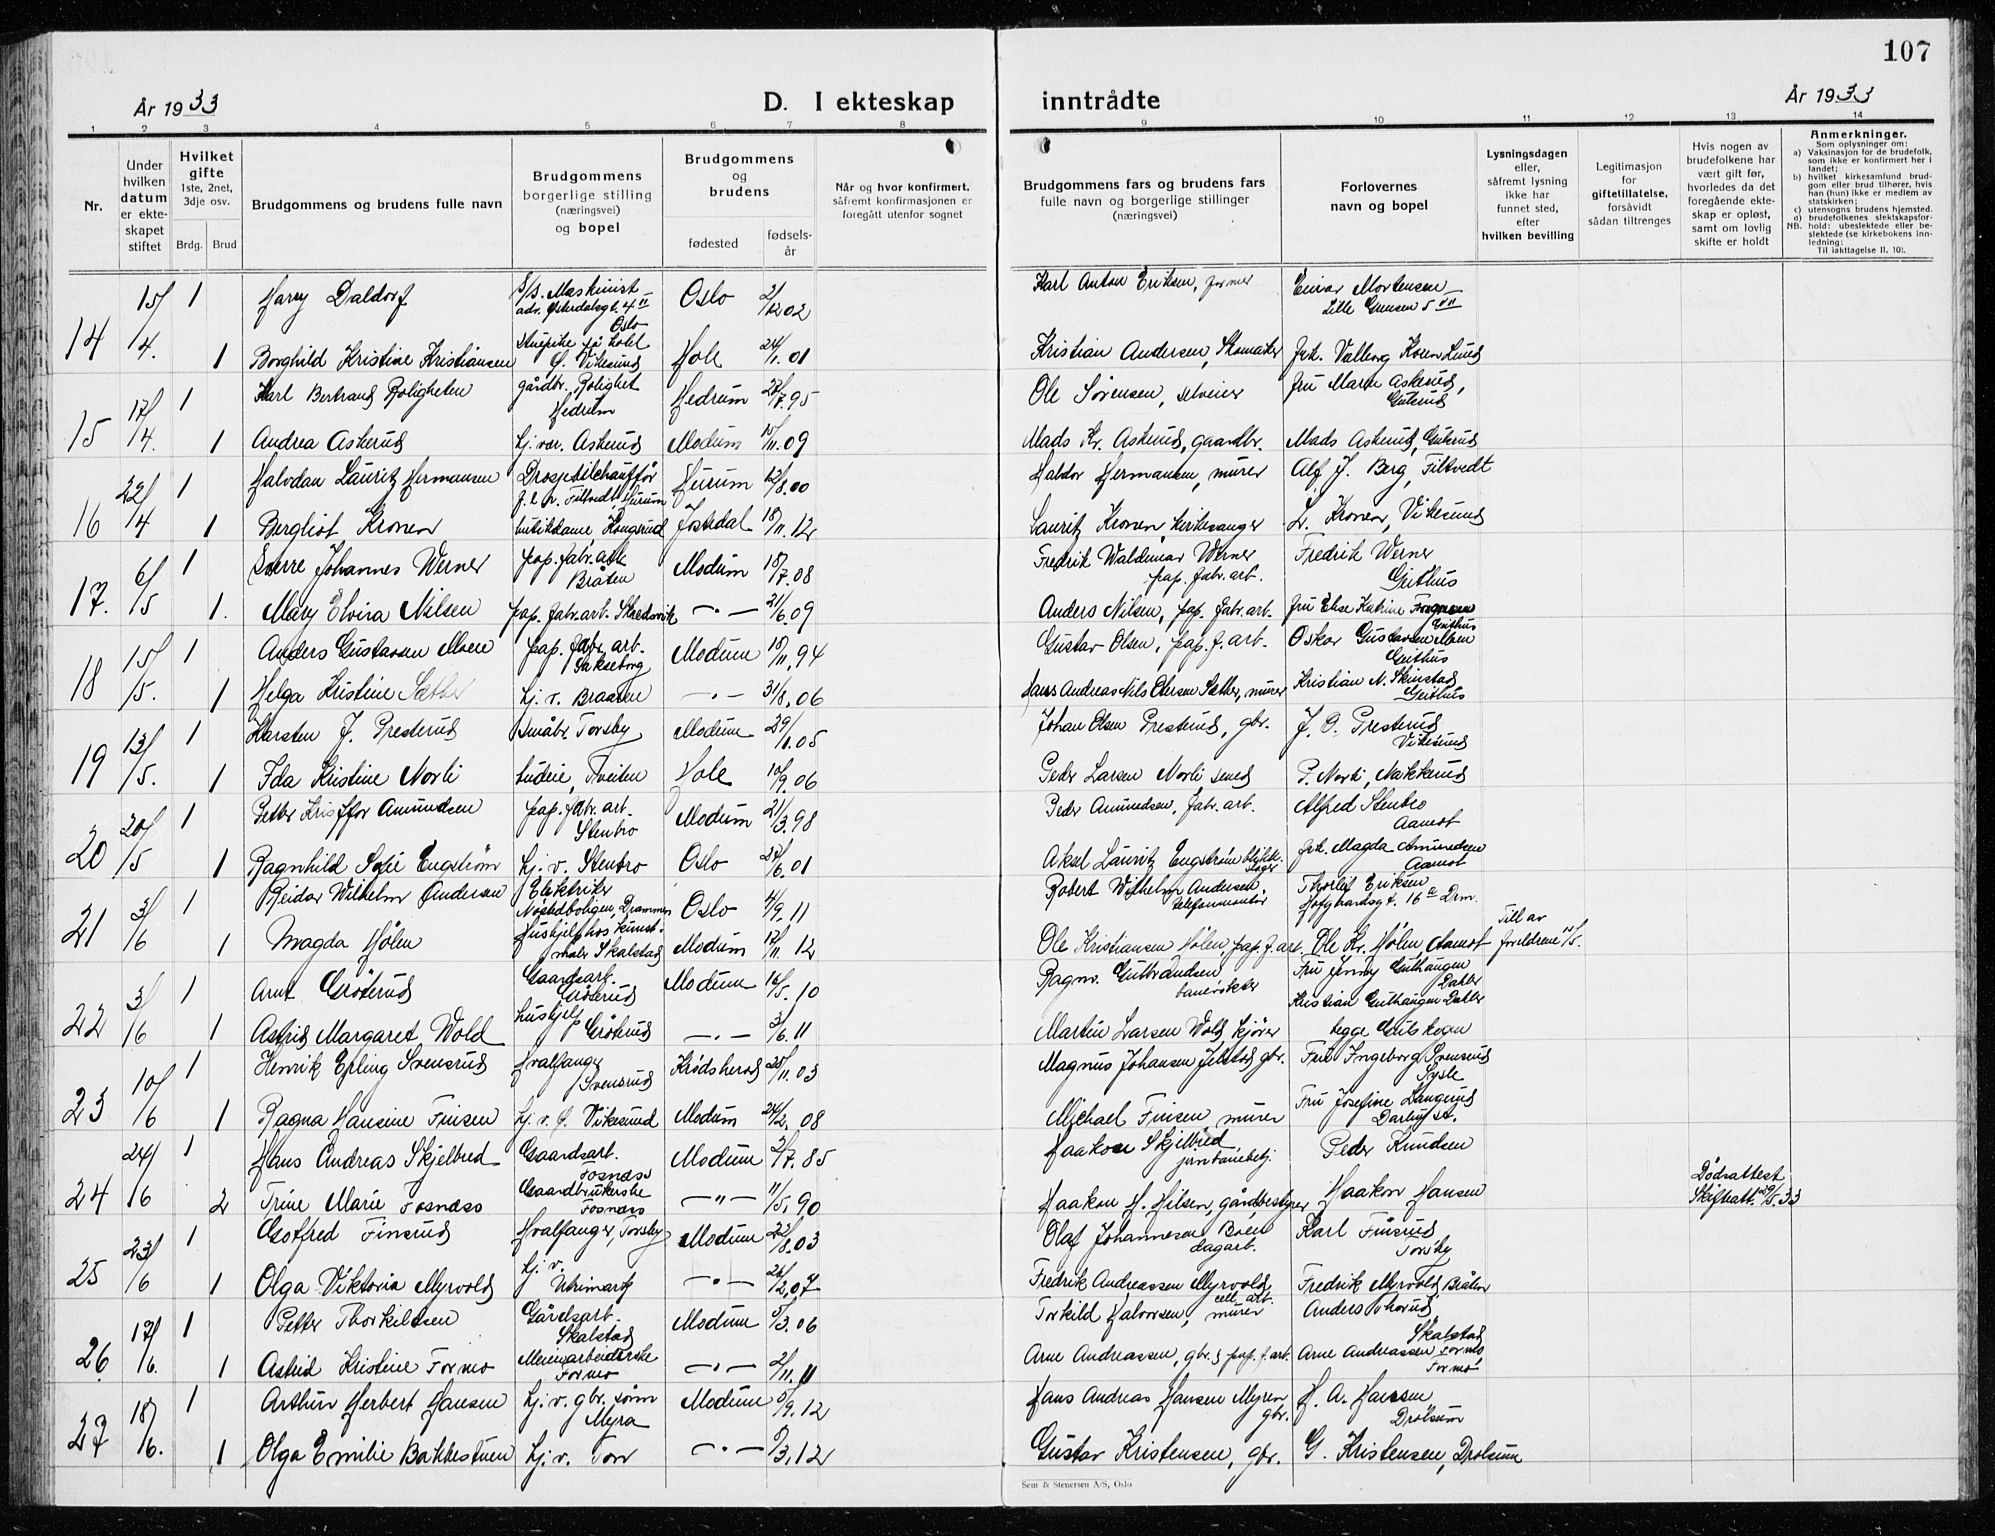 107
År 1933
D. I ekteskap inntrådte
År 1933
1 2 3 4 5 6 7 8 9 10 11 12 13 14
Nr.
Under hvilken datum er ekteskapet stiftet
Hvilket gifte 1ste, 2net, 3dje osv.
Brdg. Brud
Brudgommens og brudens fulle navn
Brudgommens borgerlige stilling (næringsvei) og bopel
Brudgommens og brudens
fødested
fødselsår
Når og hvor konfirmert, såfremt konfirmasjonen er foregått utenfor sognet
Brudgommens fars og brudens fars fulle navn og borgerlige stillinger (næringsvei)
Forlovernes navn og bopel
Lysningsdagen eller, såfremt lysning ikke har funnet sted, efter hvilken bevilling
Legitimasjon for giftetillatelse, forsåvidt sådan tiltrenges
Hvis nogen av brudefolkene har vært gift før, hvorledes da det foregående ekteskap er opløst, samt om lovlig skifte er holdt
Anmerkninger.
Som oplysninger om:
a) Vaksinasjon for de brudefolk, som ikke er konfirmert her i landet;
b) hvilket kirkesamfund brudgom eller brud tilhører, hvis han (hun) ikke er medlem av statskirken;
c) utensogns brudens hjemsted.
d) brudefolkenes slektskapsforhold: ubeslektede eller beslektede (se kirkebokens innledning;
NB. Til iakttagelse II. 10).
14 15/4. 1 Harry Daldorf S/S. Maskinist adr. Østerdalsgt. 4 II Oslo Oslo 2/12 02 Karl Anton Eriksen, former Einar Mortensen Lille Grensen 5 VII
1 Borghild Kristine Kristiansen stuepike på hotel f. Vikesund Hole 24/1. 01 Kristian Andersen, Skomaker frk. Valborg Koren Lund
15 17/4. 1 Karl Bertrand Roligheten gårdbr. Rolighet Hedrum Hedrum 27/7. 95 Ole Sørensen, selveier fru Maren Askerud, Guterud
1 Andrea Askerud hj. vær. Askerud Modum 15/11. 09 Mads Kr. Askerud, gaardbr. Mads Askerud, Guterud
16 22/4 1 Halvdan Lauritz Hermansen Drosjebilchauffør f. e. h. Filtvedt, Hurum Hurum 12/8. 00 Haldor Hermansen, murer Alf J. Berg, Filtvedt
1 Bergliot Kronen butikdame, Kongsrud Jostedal 18/11. 12 Lauritz Kronen, kirkesanger L. Kronen, Vikesund
17. 6/5 1 Sverre Johannes Werner pap. fabr. arb. Bråten Modum 18/7. 08 Fredrik Waldemar Werner pap. fabr. arb. Fredrik Werner Geithus
1. Mary Elvira Nilsen pap. fabr. arb. Skredsvik —"— 21/6. 09 Anders Nilsen, pap. fabr. arb. fru Else Katrine Geithus
18 15/5. 1 Anders Gustavsen Moen pap. fabr. arb. Sakseborg Modum 18/11. 94 Gustav Olsen, pap. f. arb. Oskar Gustavsen Moen Geithus
1 Helga Kristine Sæther hj. v. Braaten —"— 31/8. 06 Hans Andreas Nils Olersen Sæther, murer Kristian N. Skinstad Geithus
19 13/5. 1 Karsten J. Presterud Småbr. Torsby Modum 29/1. 05 Johan Olsen Presterud, gbr. J. O. Presterud Vikesund
1 Ida Kristine Norli budeie, Tveiten Hole 10/9. 06 Peder Larsen Norli smed P. Norli, Nakkerud
20 20/5 1 Petter Kristoffor Amundsen pap. fabr. arb. Stenbro Modum 21/3. 98 Peder Amundsen, fabr. arb. Alfred Stenbro Aamot
1 Ragnhild Sofie Engstrøm hj. v. Stenbro Oslo 27/6. 01 Aksel Lauritz Engstrøm blikkslager frk. Magda Amundsen Aamot
21 3/6 1 Reidar Wilhelm Andersen Elektriker Nøstedboligen, Drammen Oslo 4/9. 11 Robert Wilhelm Andersen, telefonmontør Thorleif Eriksen Hofghansgt. 16 a Drm.
1 Magda Hølen Hushjelp hos kunstmaler Skalstad Modum 12/11. 12 Ole Kristiansen Hølen, pap. f. arb. Ole Kr. Hølen Aamot Till. av foreldrene 15/5.
22 3/6 1 Arnt Grøterud Gaardsarb. Grøterud Modum 16/5. 10 Ragnv. Gulbrandsen banevokter Fru Jenny Guthaugen Døhler
1 Astrid Margaret Wold hushjelp Grøterud —"— 3/6. 11 Martin Larsen Wold kjører Kristian Guthaugen Døhler begge Gulskogen
23 10/6 1 Henrik Erling Svensrud Hvalfanger Svensrud Krødsherad 28/11. 03 Magnus Johansen Jelstad gbr. Fru Ingeborg Svensrud Sysle
1 Ragna Hansine Finsen hj. v. f. Vikesund Modum 24/2. 08 Michael Finsen, murer Fru Josefine Langrud Darbu st.
24 24/6 1 Hans Andreas Skjelbred Gaardsarb. Fosnæss Modum 2/7. 85 Haakon Skjelbred jernbanebetj. Peder Knudsen
2 Trine Marie Fosnæss Gaardbrukerske Fosnæss —"— 11/5. 90 Haakon H. Nilsen, gårdbestyrer Haakon Hansen Dødsattest Skifteatt. 29/5. 33
25 23/6 1 Gotfred Finsrud Hvalfanger, Torsby Modum 22/8. 03 Olaf Johannesen Boen dagarb. Karl Finsrud Torsby
1 Olga Viktoria Myrvold hj. v. Utrimark —"— 26/2. 07 Fredrik Andreassen Myrvold, cell. arb. Fredrik Myrvold Bråten
26. 17/6. 1 Petter Thorkildsen Gårdsarb. Skalstad Modum 5/3. 06 Torkild Halvorsen, murer Anders Thorud Skalstad
1 Astrid Kristine Formo Meieriarbeiderske Formo —"— 2/11. 11 Arne Andreassen, gbr. & pap. f. arb. Arne Andreassen Formo Formo
27 18/6. 1 Arthur Herbert Hansen hj. v. gbr. sønn Myra Modum 5/9. 12 Hans Andreas Hansen Myren gbr. H. A. Hansen Drolsum
1 Olga Emilie Bakkestuen hj. v. Torr —"— 9/3. 12 Gustav Kristensen, gbr. G. Kristensen, Drolsum
Sem & Stenersen A/S, Oslo